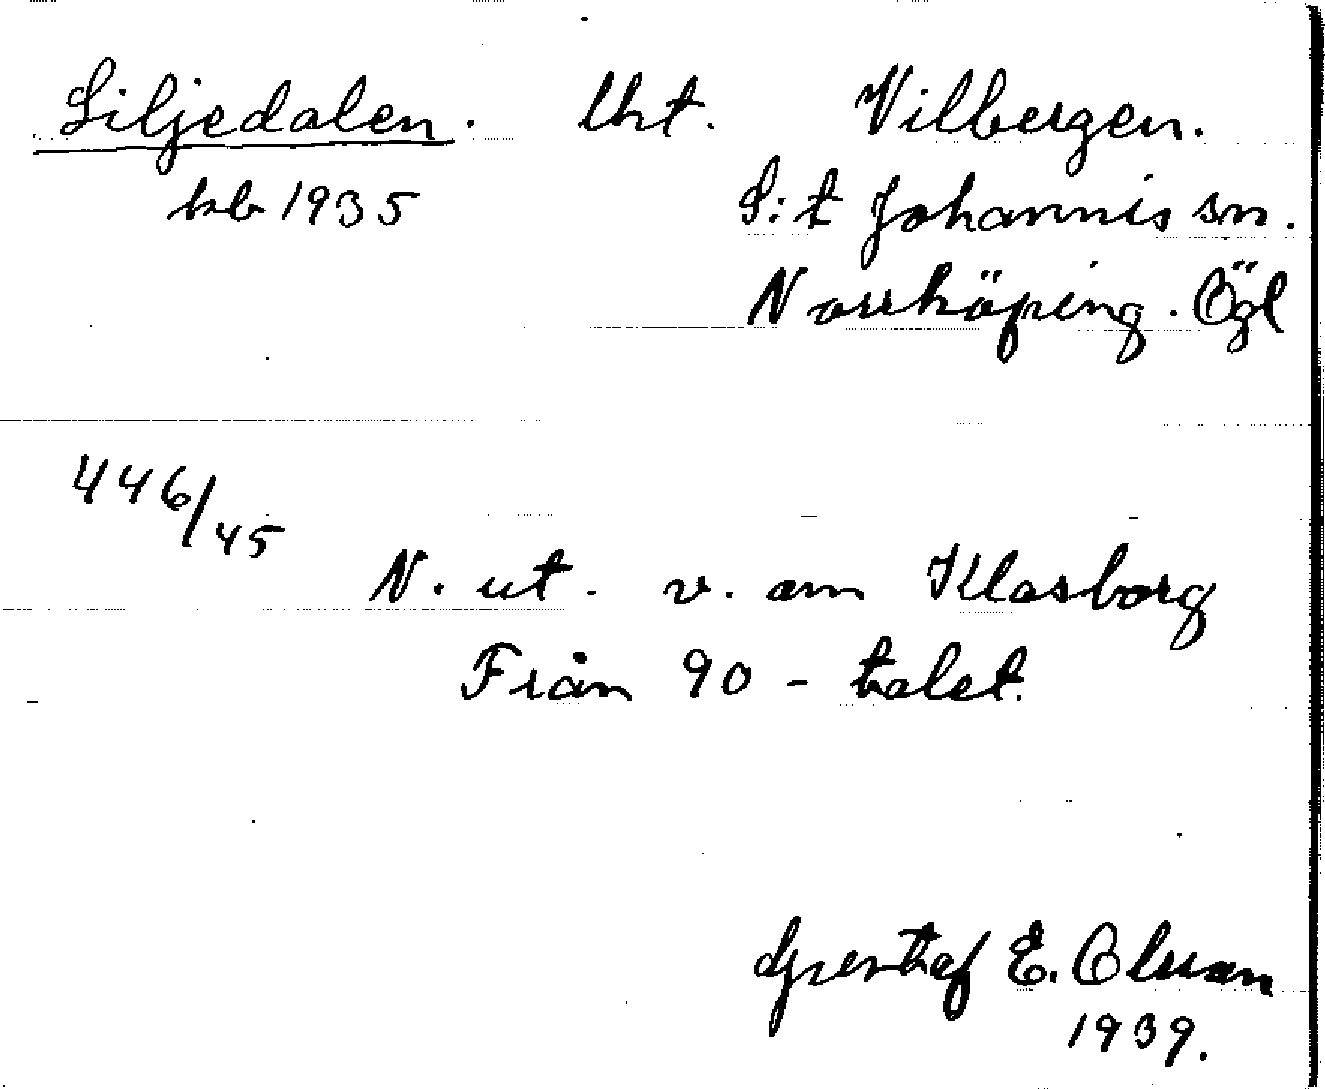 Liljedalen. lht. Vilbergen.
kb 1935 S:t Johannis sn.
Norrköping. Ögl
446/45
N. ut. v. om Klasborg
Från 90-talet.
Gustaf E. Olsson
1939.